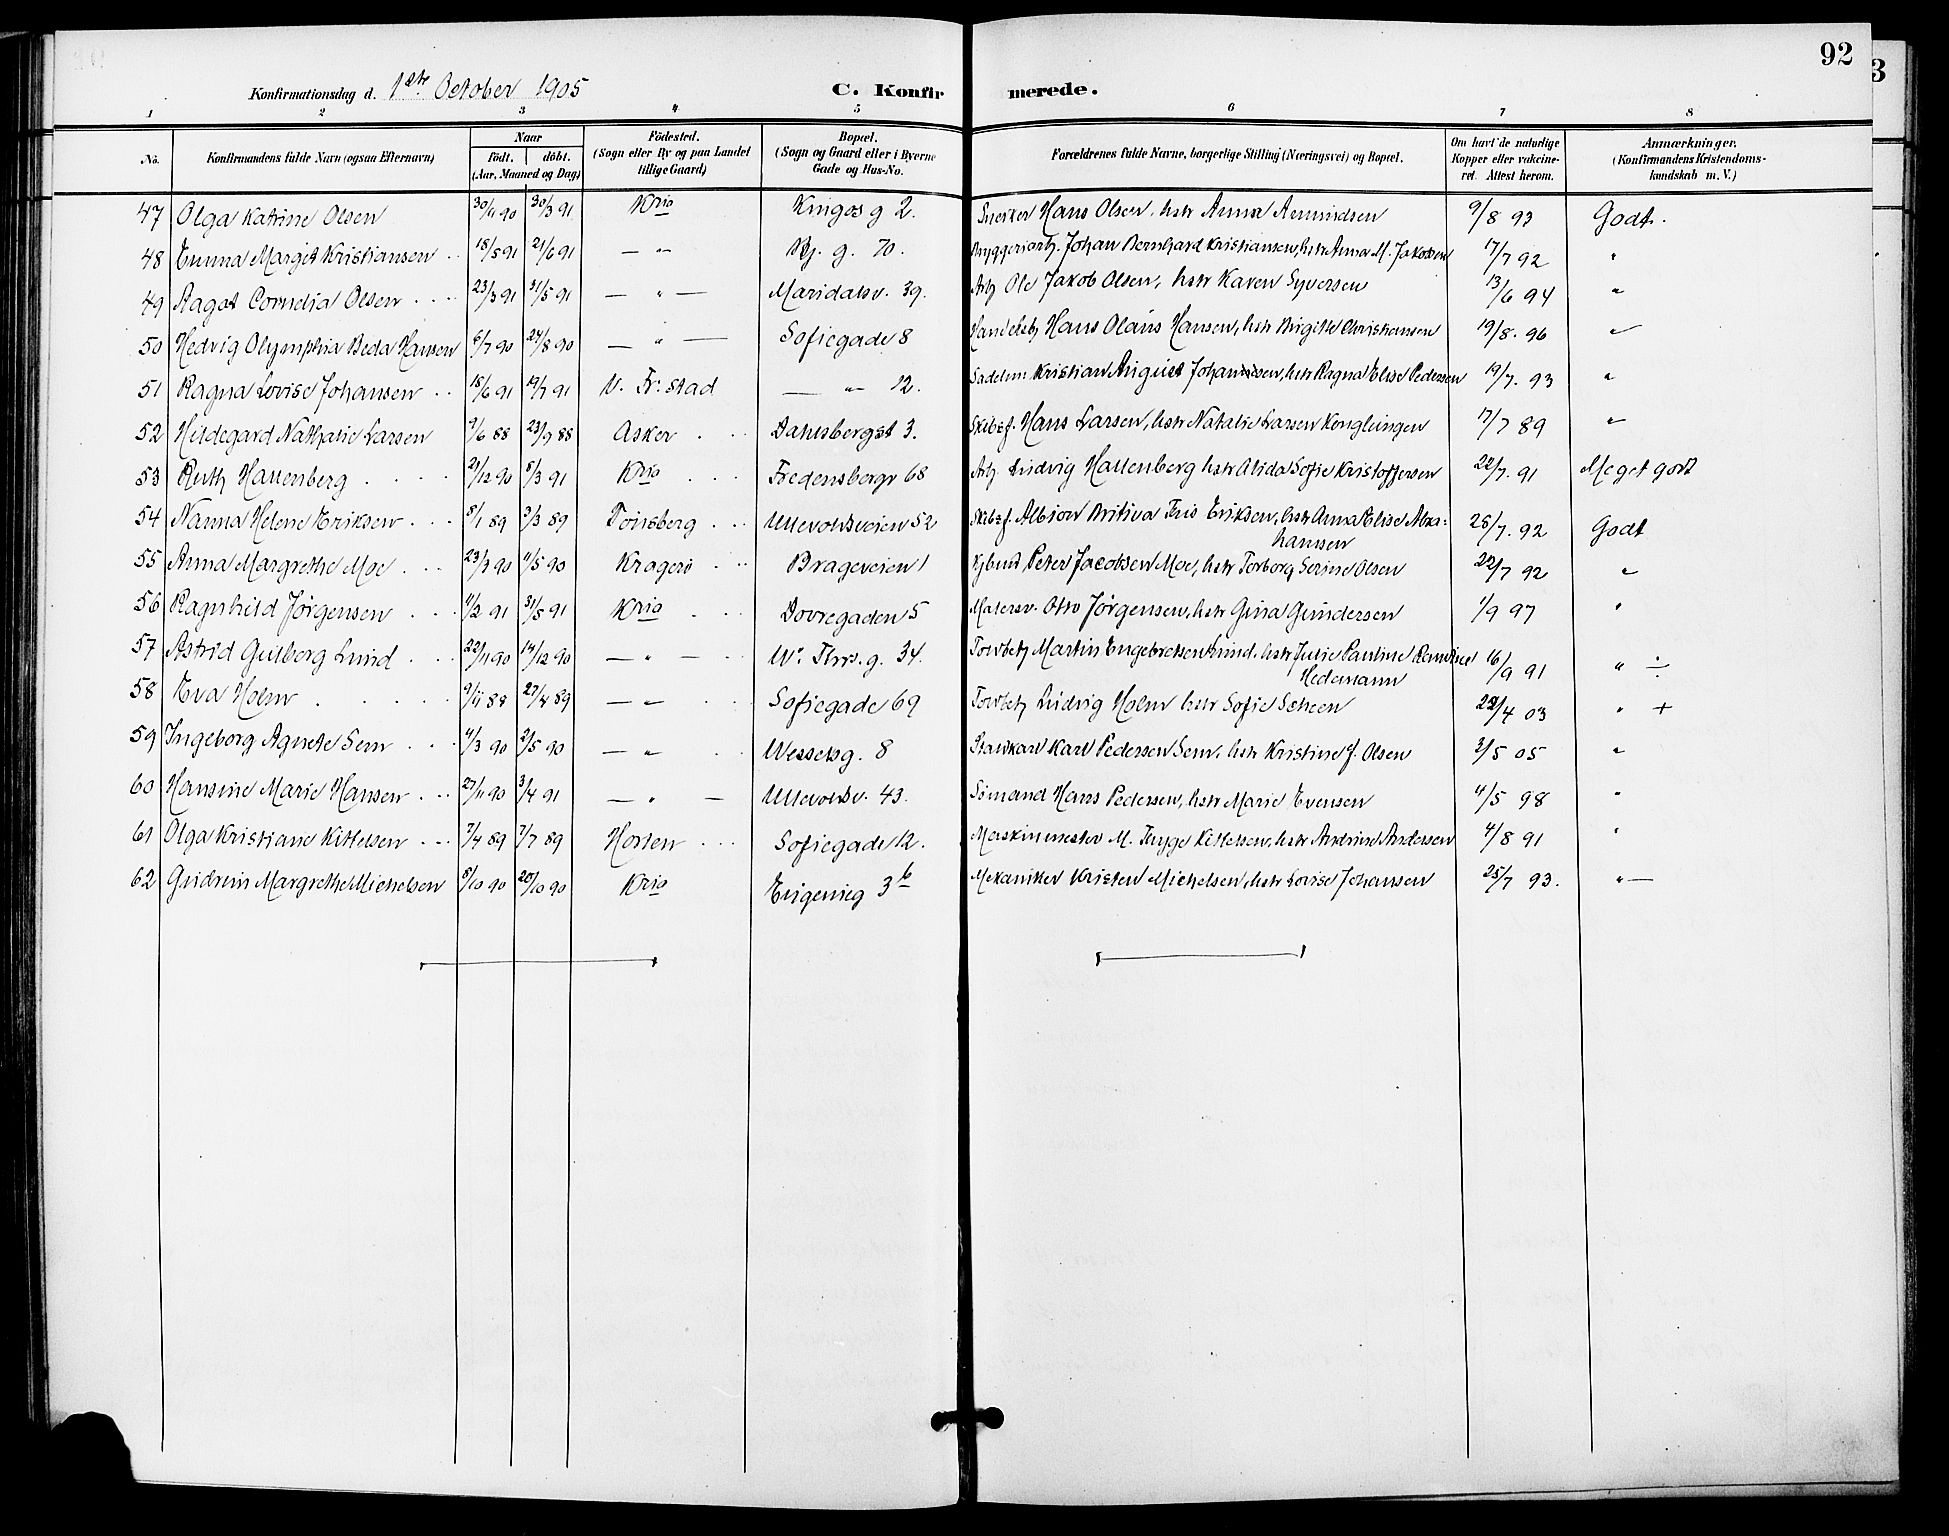 92
3
Konfirmationsdag d. 1ste October 1905 C. Konfirmerede.
1 2 3 4 5 6 7 8
No. Konfirmandens fulde Navn (ogsaa Efternavn) Naar født. døbt. (Aar, Maaned og Dag) Fødested. (Sogn eller By og paa Landet tillige Gaard) Bopæl. (Sogn og Gaard eller i Byerne Gade og Hus-No. Forældrenes fulde Navne, borgerlige Stilling (Næringsvei) og Bopæl. Om havt de naturlige Kopper eller vakcineret. Attest herom. Anmærkninger. (Konfirmandens Kristendomskundskab m. V.)
47 Olga Katrine Olsen 30/11 90 30/3 91 Kria Kingos g 2. Snerker Hans Olsen, hstr Anna Amundsen 9/8 93 Godt.
48 Emma Margit Kristiansen 18/5 91 21/6 91 — " — Bj. g. 70. Bryggeriarb. Johan Bernhard Kristiansen, hstr Anna M. Jakobsen 17/7 92 "
49 Ragna Cornelia Olsen 23/3 91 31/5 91 — " — Maridalsv. 39. Arb Ole Jakob Olsen, hstr Karen Syversen 13/6 94 "
50 Hedvig Olymphia Beda Hansen 6/7 90 24/8 90 — " — Sofiegade 8 Handelsb Hans Olaus Hansen, hstr Birgitte Christiansen 19/8. 96 "
51 Ragna Lovise Johansen 18/6 91 19/7 91 V. Fr:stad — " — 12. Sadelm. Kristian August Johansen, hstr Ragna Elise Pedersen 19/7. 93 "
52 Hildegard Nathalie Larsen 9/6 88 23/9 88 Asker Dahlsbergst 3. Skibsf. Hans Larsen, hstr Natalie Larsen Konglungen 17/7 89 "
53 Ruth Hallenberg 21/12 90 8/3 91 Kria Fredensborgv 68 Arb Ludvig Hallenberg hstr Alida Sofie Kristoffersen 22/7. 91 Meget godt
54 Nanna Helene Eriksen 8/1 89 3/3 89 Tønsberg Ullevoldsveien 52 Skibsf. Albion Eriksen, hstr Anna Elise Abrahamsen 25/7. 92 Godt
55 Anna Margrethe Moe 23/3 90 11/5 90 Kragerø Brageveien 1 Peter Jacobsen Moe, hstr Torborg Serine Olsen 22/7 92 "
56 Ragnhild Jørgensen 11/2 91 31/5 91 Kria Dovregaden 5 Malersv. Otto Jørgensen, hstr Gina Gundersen 1/9 97 "
57 Astrid Gulborg Lund 22/11 90 14/12 90 — " — W. Thrs. g. 34. Toldbetj Martin Engebretsen Lund. hstr Julie Pauline Hedemann 16/9 91 " ÷
58 Eva Holm 9/11 88 27/4 89 — " — Sofiegade 69 Toldbetj Ludvig Holm hstr Sofie Scheen 22/4 03 " +
59 Ingeborg Agnete Sem 4/3 90 2/5 90 — " — Wesselsg. 8 Staldkarl Karl Pedersen Sem, hstr Kristine J. Olsen 3/5 05 "
60 Hansine Marie Hansen 27/11 90 3/4 91 — " — Ullevoldsv. 43. Sømand Hans Pedersen, hstr Marie Evensen 4/5 98 "
61 Olga Kristiane Kittelsen 7/4 89 7/7 89 Horten Sofiegade 12. Maskinmester M. Thyge Kittelsen, hstr Andrine Andersen 4/8 91 "
62 Gudrun Margrethe Michelsen 8/10 90 20/10 90 Kria Eugenieg 3b Mekaniker Kristen Michelsen, hstr Lovise Johansen 25/7 93. " —